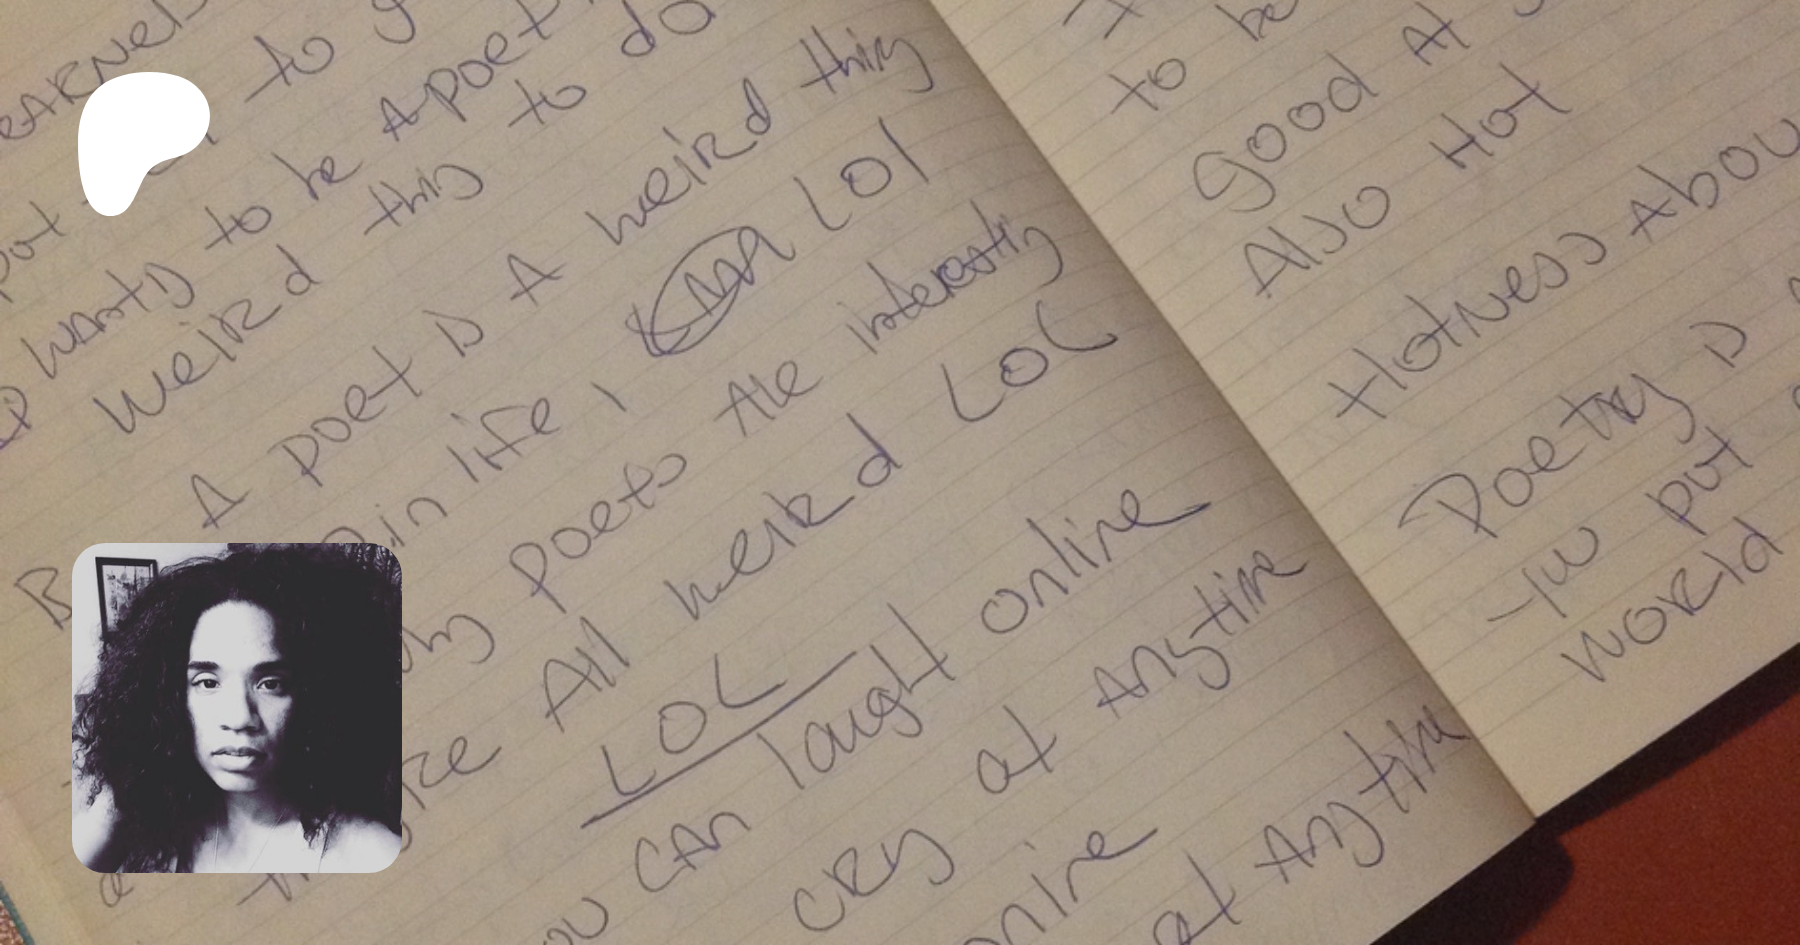 to g
wants to be A poet
weird this to do
A poet is A weird thing
in life I LOL
why poets Are interesting
All weird LOL
LOL
you can laugh online
cry at Anytime
online
at Anytime
to be
good At
Also Hot
Hotness Abou
Poetry is
put
world